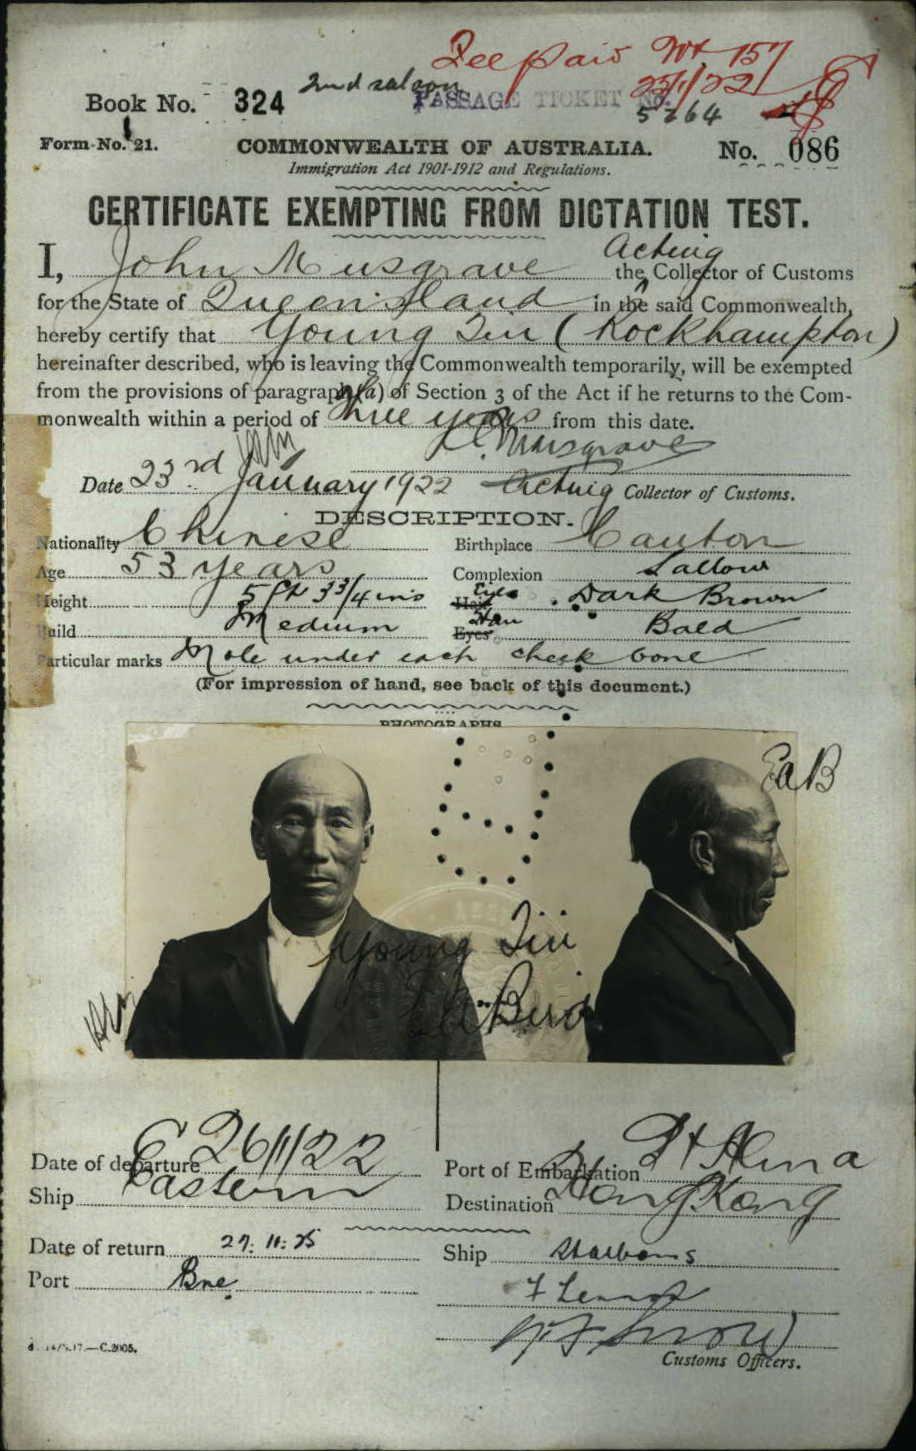 Fee paid No 157
2nd saloon
25/1/22
Book No. 324
PASSAGE TICKET No.
5264
Form No. 21.
COMMONWEALTH OF AUSTRALIA.
No. 086
Immigration Act 1901-1912 and Regulations.
CERTIFICATE EXEMPTING FROM DICTATION TEST.
Acting
I, John Musgrave the Collector of Customs
for the State of Queensland in the said Commonwealth,
hereby certify that Young Tin (Rockhampton)
hereinafter described, who is leaving the Commonwealth temporarily, will be exempted
from the provisions of paragraph (a) of Section 3 of the Act if he returns to the Com-
monwealth within a period of three years from this date.
J. Musgrave
Date 23rd January 1922 Acting Collector of Customs.
DESCRIPTION.
Nationality Chinese Birthplace Canton
Age 53 years Complexion Sallow
Height 5 ft 3 3/4 ins Hair Eyes Dark Brown
Build Medium Eyes Hair Bald
Particular marks Mole under each cheek bone
(For impression of hand, see back of this document.)
PHOTOGRAPHS
EaB
Young Tin
EA Bird
Date of departure 26/1/22 Port of Embarkation Pt Alma
Ship Eastern Destination Hong Kong
Date of return 27.11.25 Ship St Albans
Port Bne
Customs Officers.
C.2005.